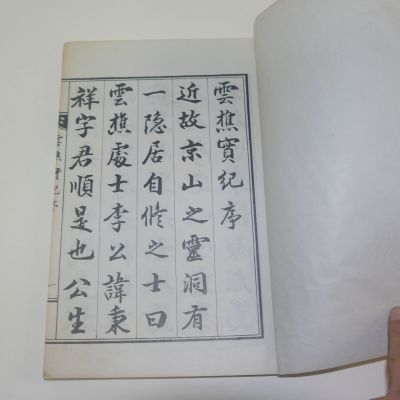 雲樵實紀序
近故京山之靈洞有
一隐居自修之士曰
雲樵處士李公諱秉
祥字君順是也公生
雲樵實紀序